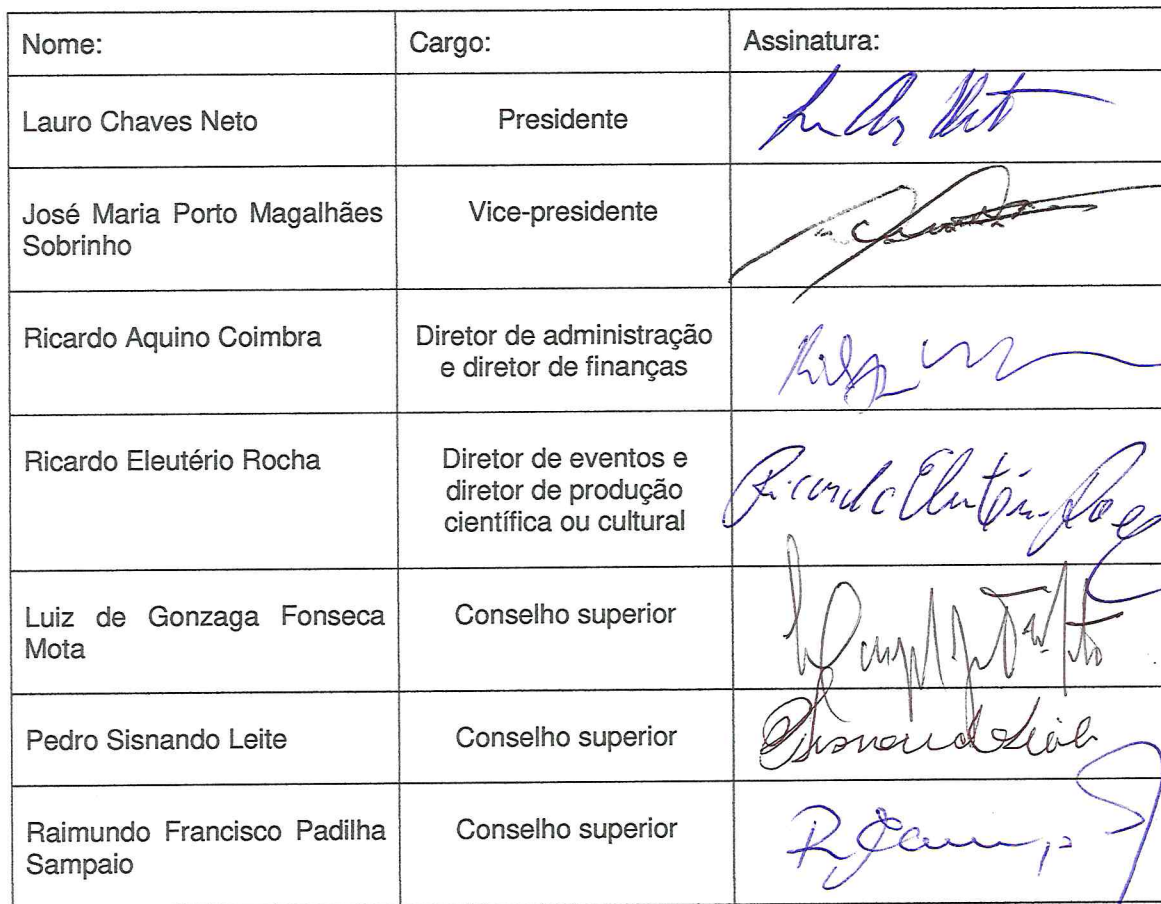 Nome: Cargo: Assinatura:
Lauro Chaves Neto Presidente
José Maria Porto Magalhães Vice-presidente
Sobrinho
Ricardo Aquino Coimbra Diretor de administração
e diretor de finanças
Ricardo Eleutério Rocha Diretor de eventos e
diretor de produção
científica ou cultural
Luiz de Gonzaga Fonseca Conselho superior
Mota
Pedro Sisnando Leite Conselho superior
Raimundo Francisco Padilha Conselho superior
Sampaio